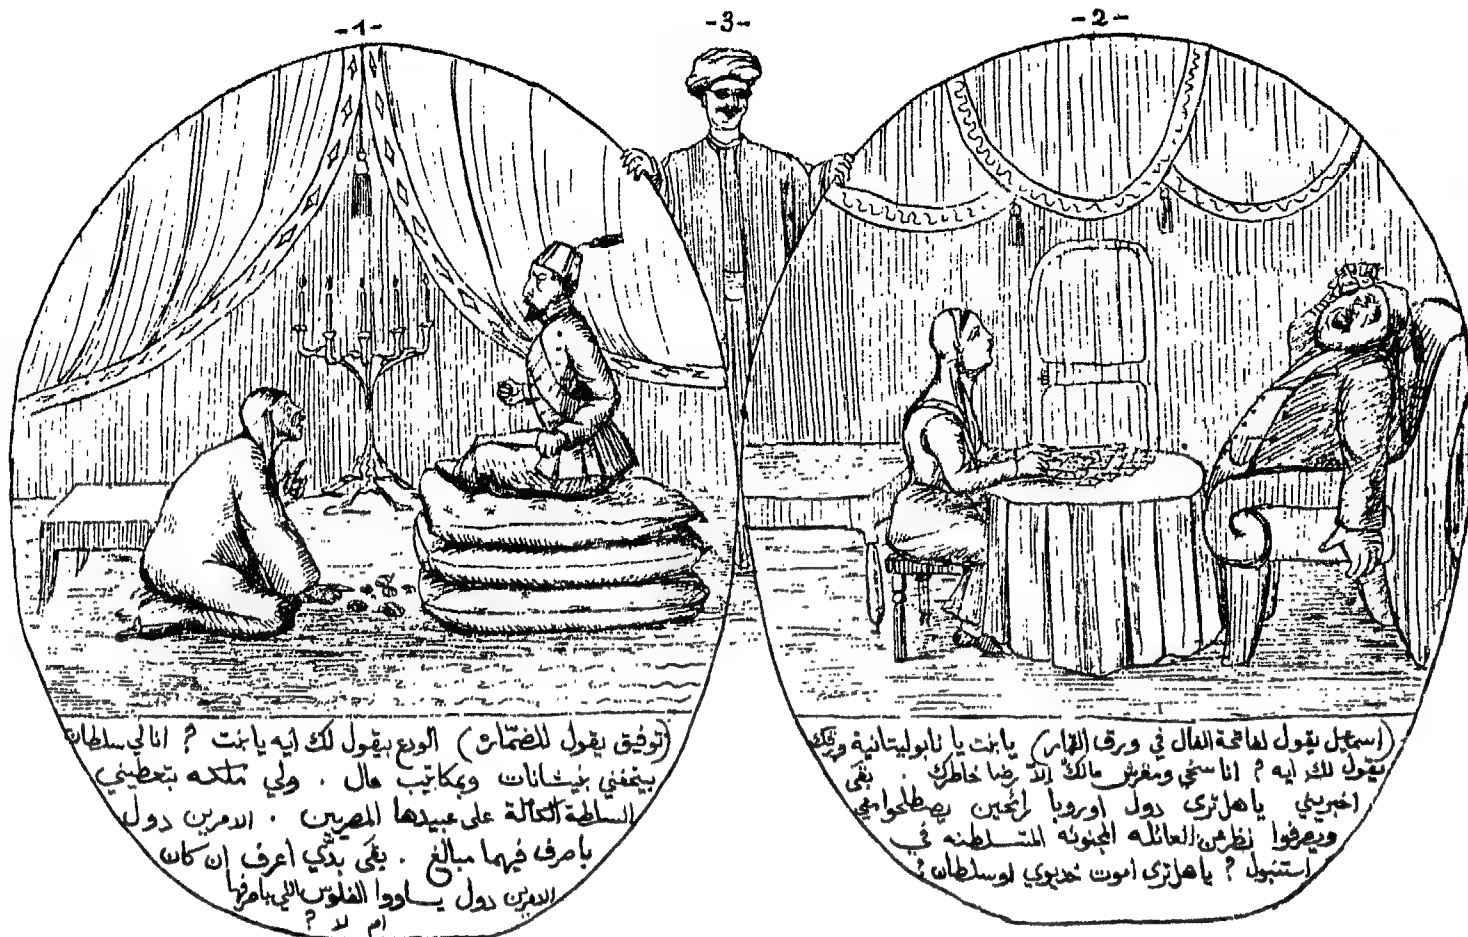 -1-
-3-
-2-
(توفيق يقول للضمّارة) الودع بيقول لك ايه يا بنت ? انا لي سلطان
بيتحفني بنيشانات وبمكاتيب مال . ولي ملكه بتعطيني
السلطة الكاملة على عبيدها المصريين . الامرين دول
باصرف فيهما مبالغ . بقى بدّي اعرف ان كان
الامرين دول يساووا الفلوس اللي باصرفها
ام لا ?
(اسماعيل يقول لفاتحة الفال في ورق القمار) يا بنت يا نابوليتانية ورقك
يقول لك ايه ? انا سخي ومغرمش مالك الاّ رضا خاطرك . بقى
اخبريني يا هل ترى دول اوروبا رائحين يصطلحوا معي
ويصرفوا نظر عن العائله المجنونه المتسلطنه في
استنبول ? يا هل ترى اموت خديوي او سلطان ?